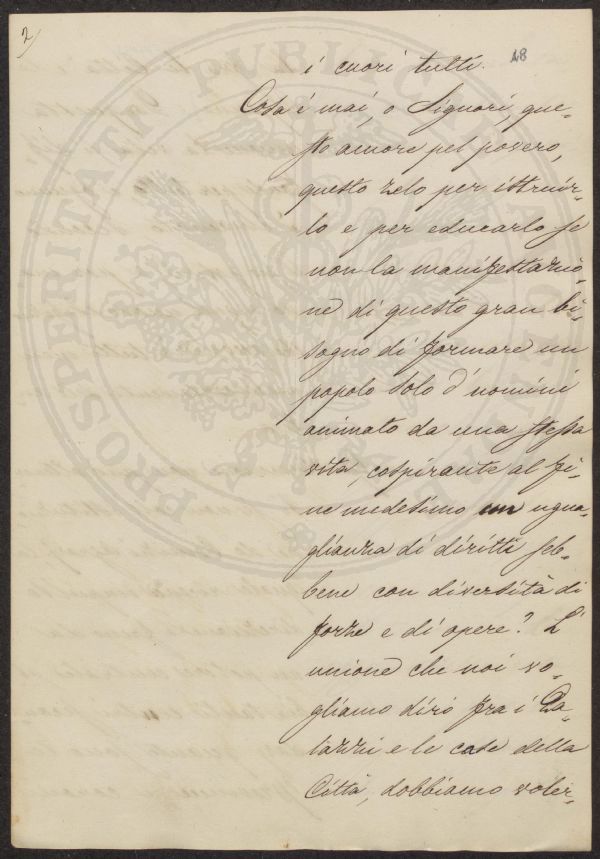 2)
18
i cuori tutti.
Cosa è mai, o Signori, que-
sto amore pel povero,
questo zelo per istruir-
lo e per educarlo se
non la manifestazio-
ne di questo gran bi-
sogno di formare un
popolo solo d'uomini
animato da una stessa
vita, cospirante al fi-
ne medesimo un ugua-
glianza di diritti seb-
bene con diversità di
forze e di opere? L'
unione che noi vo-
gliamo dirò fra i Pa-
lazzi e le case della
Città, dobbiamo voler-
PROSPERITATI PUBLICAE